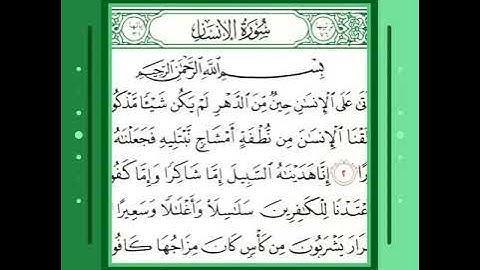 سُورَةُ الإِنسَانِ
بِسْمِ اللَّهِ الرَّحْمَٰنِ الرَّحِيمِ
تَىٰ عَلَى الْإِنسَٰنِ حِينٌ مِّنَ الدَّهْرِ لَمْ يَكُن شَيْئًا مَّذْكُو
لَقْنَا الْإِنسَٰنَ مِن نُّطْفَةٍ أَمْشَاجٍ نَّبْتَلِيهِ فَجَعَلْنَٰهُ
رًا ٢ إِنَّا هَدَيْنَٰهُ السَّبِيلَ إِمَّا شَاكِرًا وَإِمَّا كَفُو
عْتَدْنَا لِلْكَٰفِرِينَ سَلَٰسِلَا۟ وَأَغْلَٰلًا وَسَعِيرًا
رَارَ يَشْرَبُونَ مِن كَأْسٍ كَانَ مِزَاجُهَا كَافُو